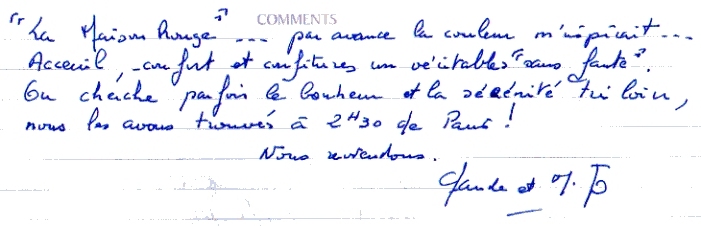 COMMENTS
"La Maison Rouge" ... par avance la couleur m'inspirait...
Acceuil, confort et confitures un véritables "sans faute".
On cherche parfois le bonheur et la sérénité très loin,
nous les avons trouvés à 2H30 de Paris !
Nous reviendrons.
Claude et